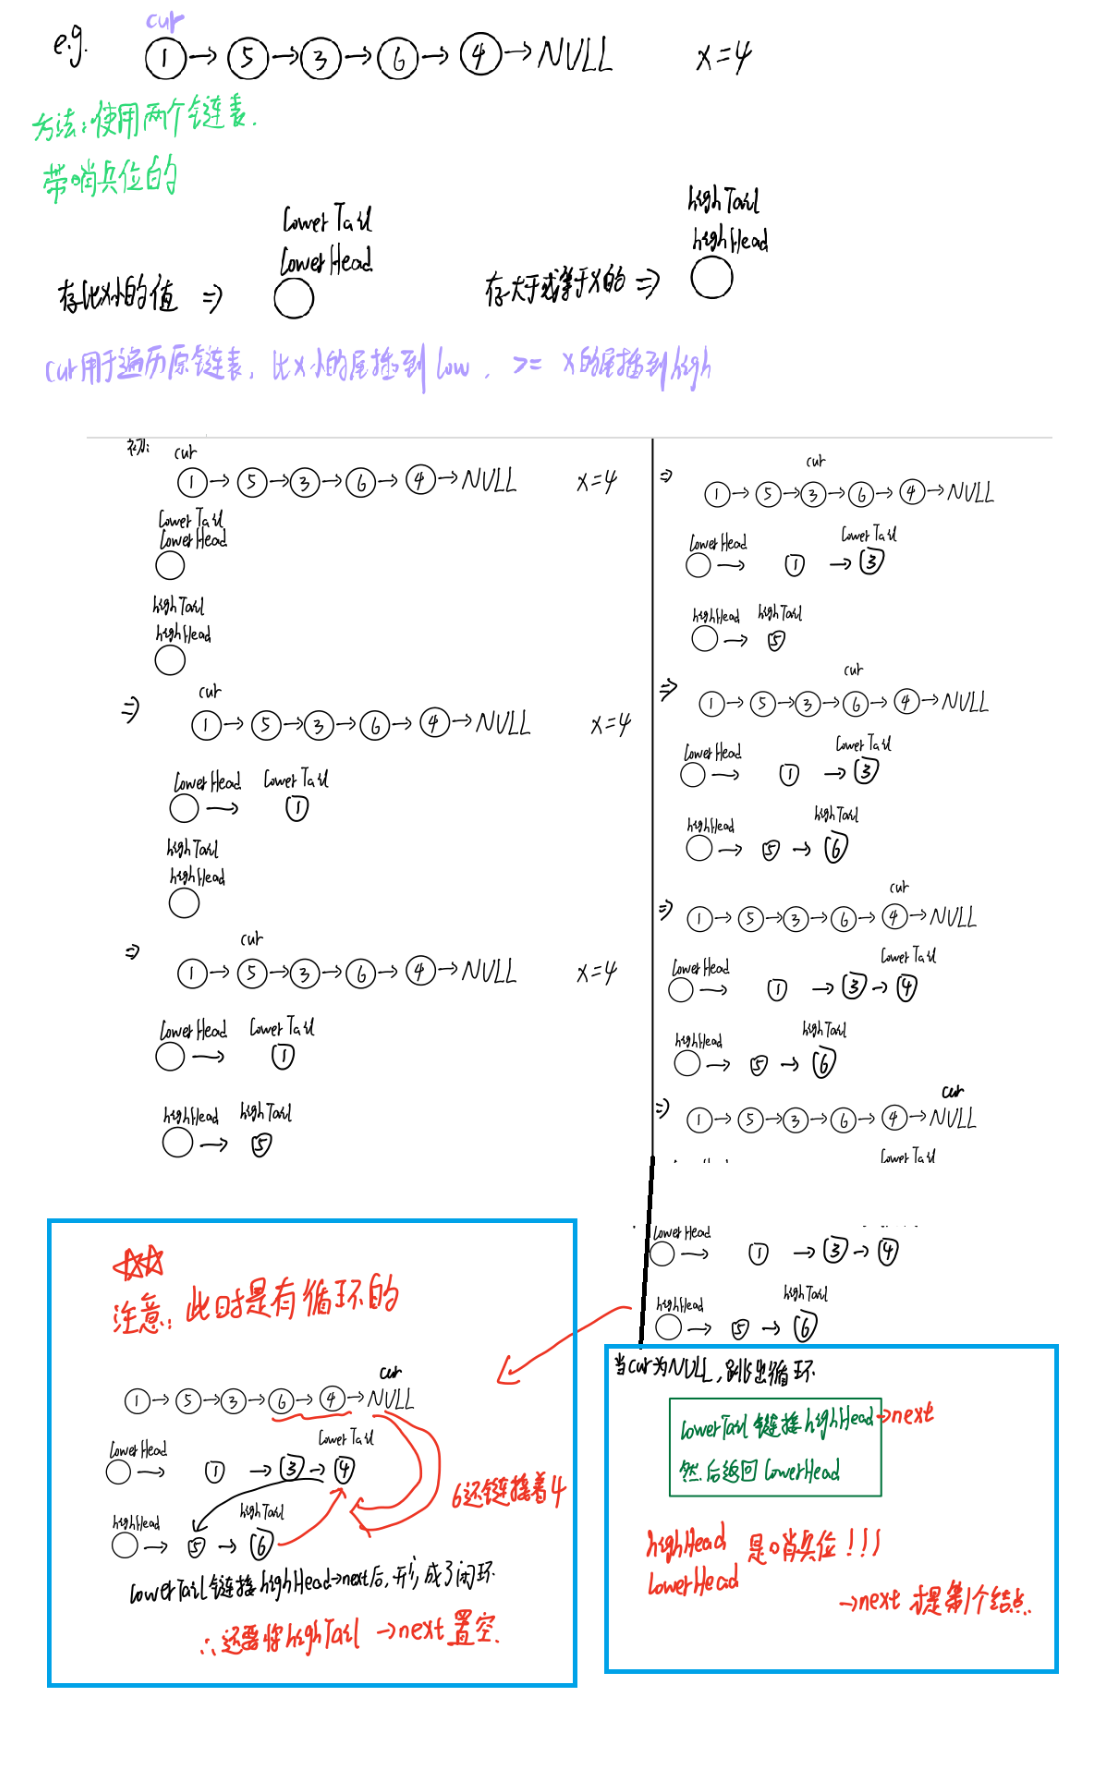 e.g.
cur
1→5→3→6→4→NULL x=4
方法:使用两个链表.
带哨兵位的
lowerTail
lowerHead
存比x小的值 ⇒
highTail
highHead
存大于或等于x的 ⇒
cur用于遍历原链表, 比x小的尾插到low, >= x的尾插到high
初:
cur
1→5→3→6→4→NULL x=4
lowerTail
lowerHead
highTail
highHead
⇒
cur
1→5→3→6→4→NULL x=4
lowerHead lowerTail
→ 1
highTail
highHead
⇒
cur
1→5→3→6→4→NULL x=4
lowerHead lowerTail
→ 1
highHead highTail
→ 5
⇒
cur
1→5→3→6→4→NULL
lowerHead lowerTail
→ 1 → 3
highHead highTail
→ 5
⇒
cur
1→5→3→6→4→NULL
lowerHead lowerTail
→ 1 → 3
highHead highTail
→ 5 → 6
⇒
cur
1→5→3→6→4→NULL
lowerHead lowerTail
→ 1 → 3 → 4
highHead highTail
→ 5 → 6
⇒
cur
1→5→3→6→4→NULL
lowerTail
lowerHead
→ 1 → 3 → 4
highHead highTail
→ 5 → 6
当cur为NULL,跳出循环
lowerTail链接highHead→next
然后返回lowerHead
highHead
lowerHead
是哨兵位!!!
→next 才是第1个结点.
☆☆
注意: 此时是有循环的
cur
1→5→3→6→4→NULL
lowerHead lowerTail
→ 1 → 3 → 4
highHead highTail
→ 5 → 6
6还链接着4
lowerTail链接highHead→next后,形成了闭环.
∴还要将highTail →next置空.